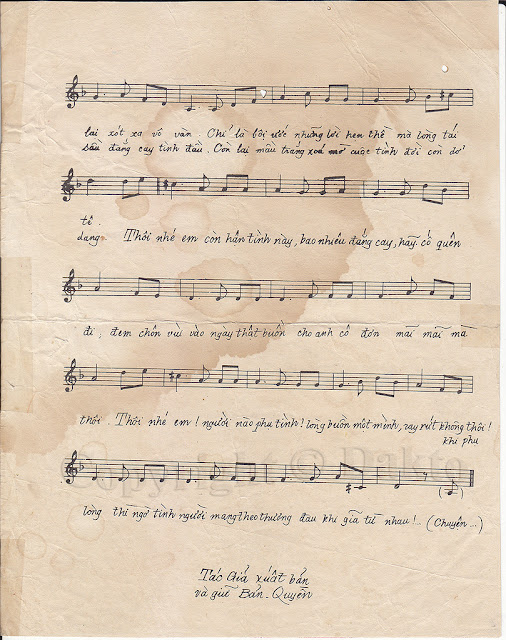 lại xót xa vô vàn. Chỉ là bội ước những lời hẹn thề mà lòng tái
sâu đắng cay tình đầu. Còn lại màu trắng xoá mờ cuộc tình đôi còn dở
tê.
dang. Thôi nhé em còn hận tình này, bao nhiêu đắng cay, hãy cố quên
đi; đem chôn vùi vào ngày thật buồn cho anh cô đơn mãi mãi mà
thôi. Thôi nhé em! người nào phụ tình! lòng buồn một mình, ray rứt không thôi!
khi phụ
lòng thì ngờ tình người mang theo thương đau khi giã từ nhau! (Chuyên...)
Copyright © Dakto
Tác Giả xuất bản
và giữ Bản-Quyền